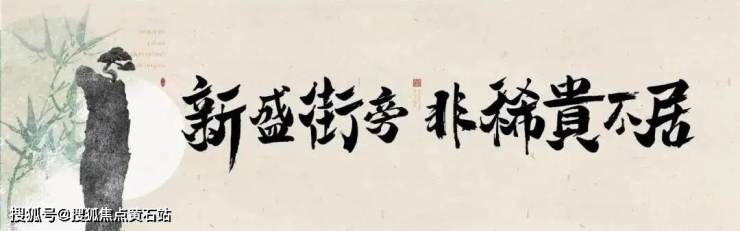 新盛街旁 非稀貴不居
搜狐号@搜狐焦点黄石站